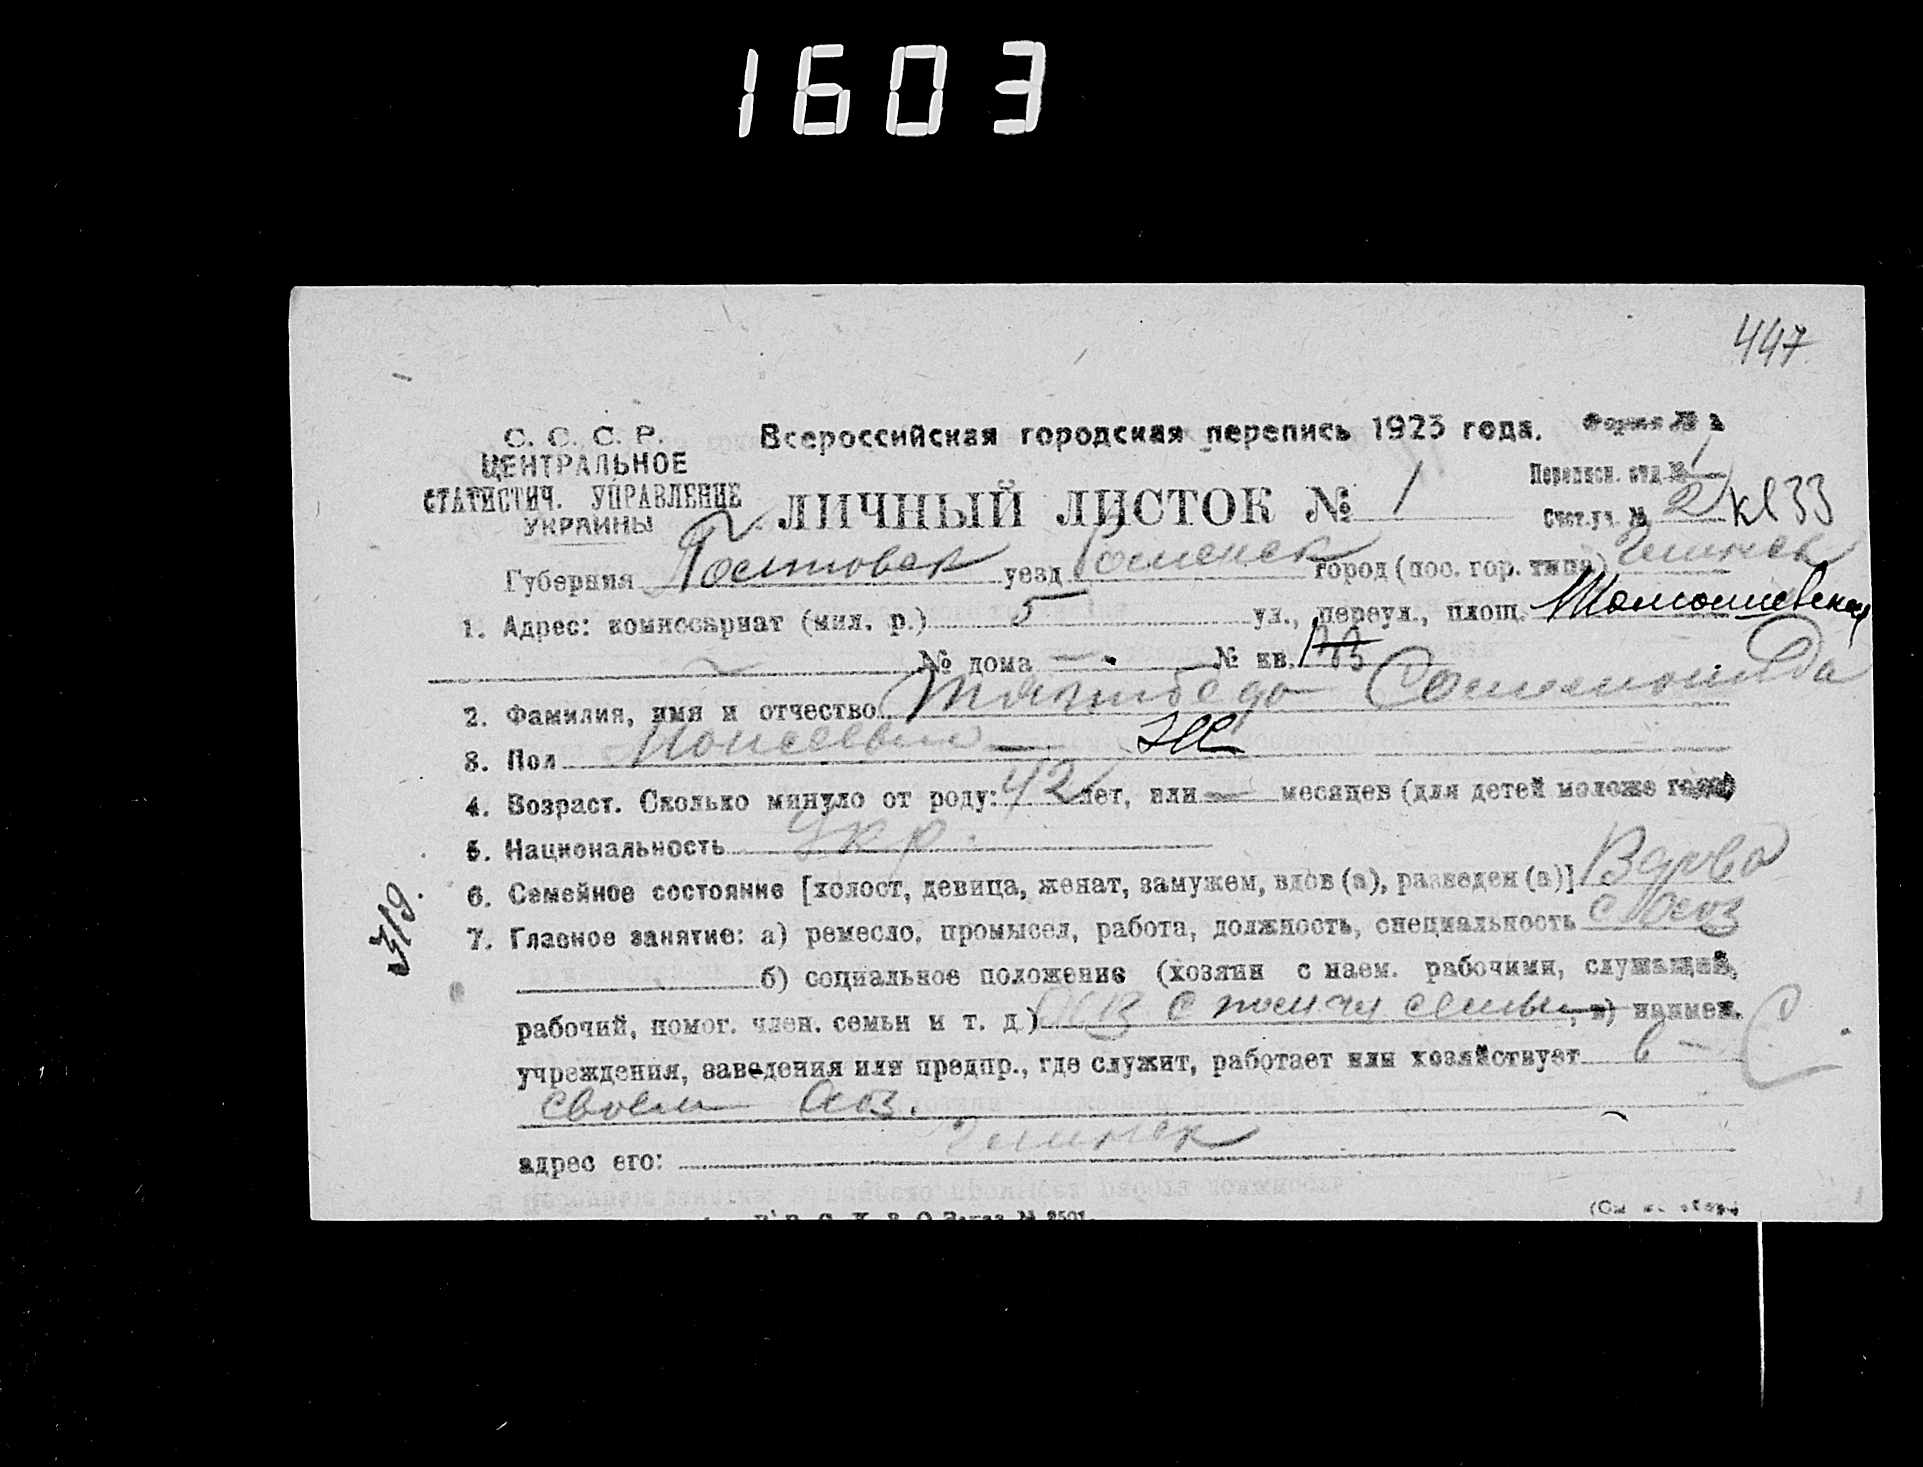 1603
447
С. С. С. Р.
ЦЕНТРАЛЬНОЕ
СТАТИСТИЧ. УПРАВЛЕНИЕ
УКРАИНЫ
Всероссийская городская перепись 1923 года.
Форма № 2
Переписн. отд. № 1
ЛИЧНЫЙ ЛИСТОК № 1
Счет. уч. № 2 кв 33
Губерния Полтовск уезд Роменск город (пос. гор. типа)
1. Адрес: комиссариат (мил. р.) 5 ул., переул., площ.
№ дома — № кв.
2. Фамилия, имя и отчество
3. Пол Моисеевна — ж
4. Возраст. Сколько минуло от роду: 42 лет, или — месяцев (для детей моложе года)
5. Национальность Укр.
6. Семейное состояние [холост, девица, женат, замужем, вдов (а), разведен (а)] Вдова
7. Главное занятие: а) ремесло, промысел, работа, должность, специальность с хоз
б) социальное положение (хозяин с наем. рабочими, служащий,
рабочий, помог. член. семьи и т. д.) хоз с помчл семьи, в) наимен.
учреждения, заведения или предпр., где служит, работает или хозяйствует в —
своем хоз.
адрес его:
319.